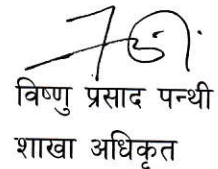 विष्णु प्रसाद पन्थी
शाखा अधिकृत